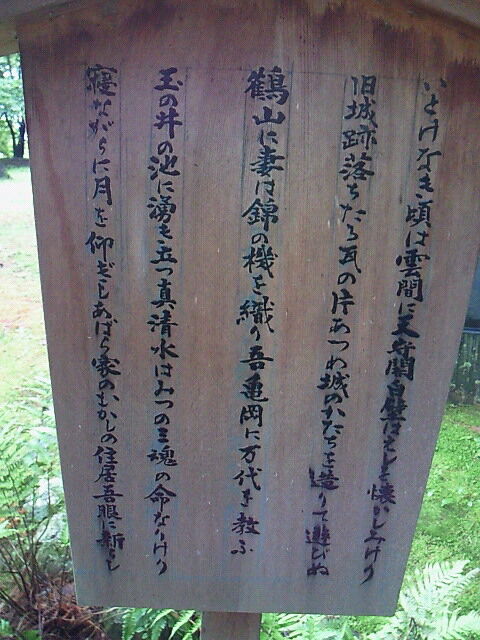 いとけなき頃は雲間に天守閣白壁はえしを懐かしみけり
旧城跡落ちたる瓦の片あつめ城のかたちを造りて遊びぬ
鶴山に妻は錦の機を織り吾亀岡に万代を教ふ
玉の井の池に湧き立つ真清水はみつの三魂の命なりけり
寝ながらに月を仰ぎしあばら家のむかしの住居吾眼に新らし